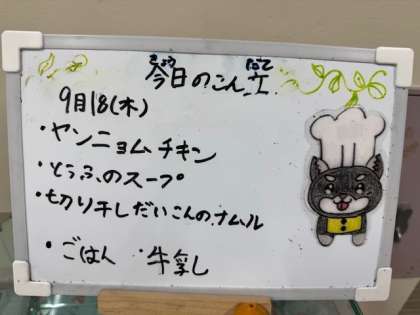 今日のこん立
きょう だて
9月18(木)
・ヤンニョムチキン
・とうふのスープ
・切り干しだいこんのナムル
・ごはん ・牛乳し